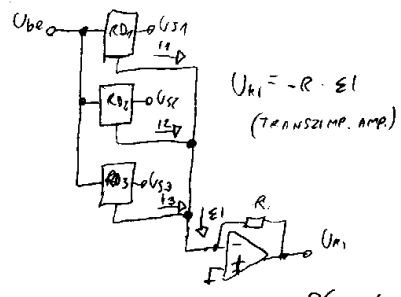 Ube
RD1
US1
i1
RD2
US2
i2
RD3
US3
i3
Uki = -R · ΣI
(TRANSZIMP. AMP.)
ΣI
R
Uki